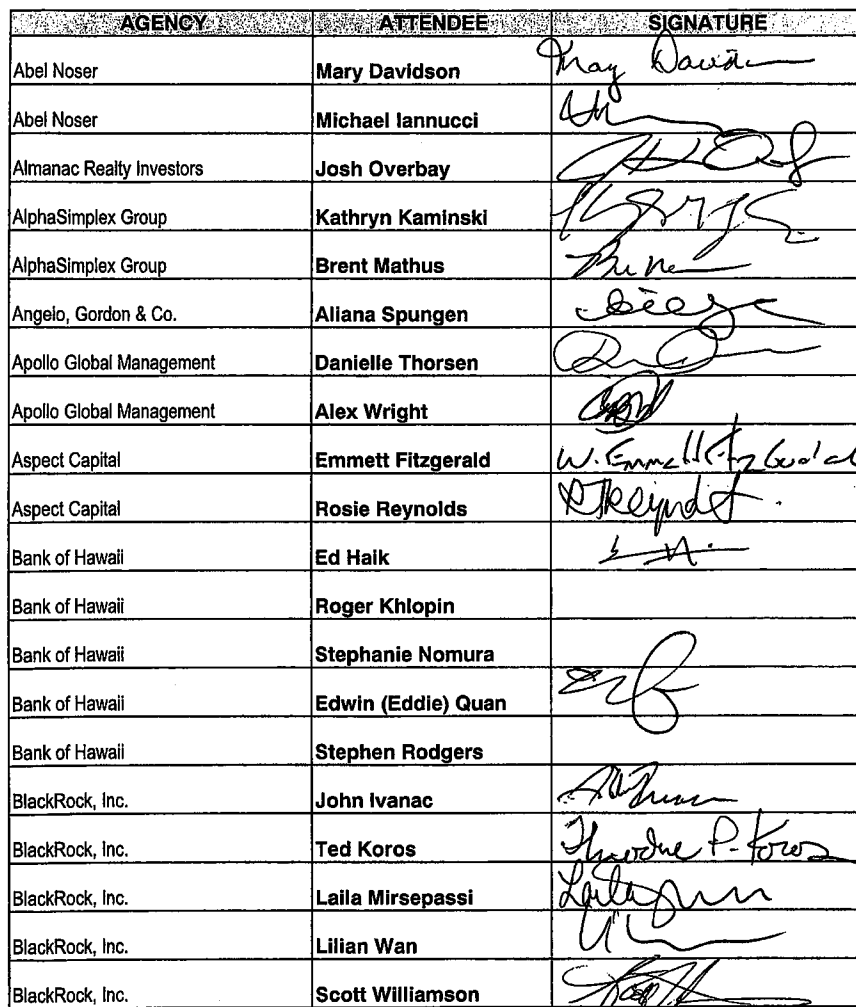 AGENCY ATTENDEE SIGNATURE
Abel Noser Mary Davidson
Abel Noser Michael Iannucci
Almanac Realty Investors Josh Overbay
AlphaSimplex Group Kathryn Kaminski
AlphaSimplex Group Brent Mathus
Angelo, Gordon & Co. Aliana Spungen
Apollo Global Management Danielle Thorsen
Apollo Global Management Alex Wright
Aspect Capital Emmett Fitzgerald W. Emmett Fitzgerald
Aspect Capital Rosie Reynolds
Bank of Hawaii Ed Haik
Bank of Hawaii Roger Khlopin
Bank of Hawaii Stephanie Nomura
Bank of Hawaii Edwin (Eddie) Quan
Bank of Hawaii Stephen Rodgers
BlackRock, Inc. John Ivanac
BlackRock, Inc. Ted Koros Theodore P. Koros
BlackRock, Inc. Laila Mirsepassi Laila
BlackRock, Inc. Lilian Wan
BlackRock, Inc. Scott Williamson